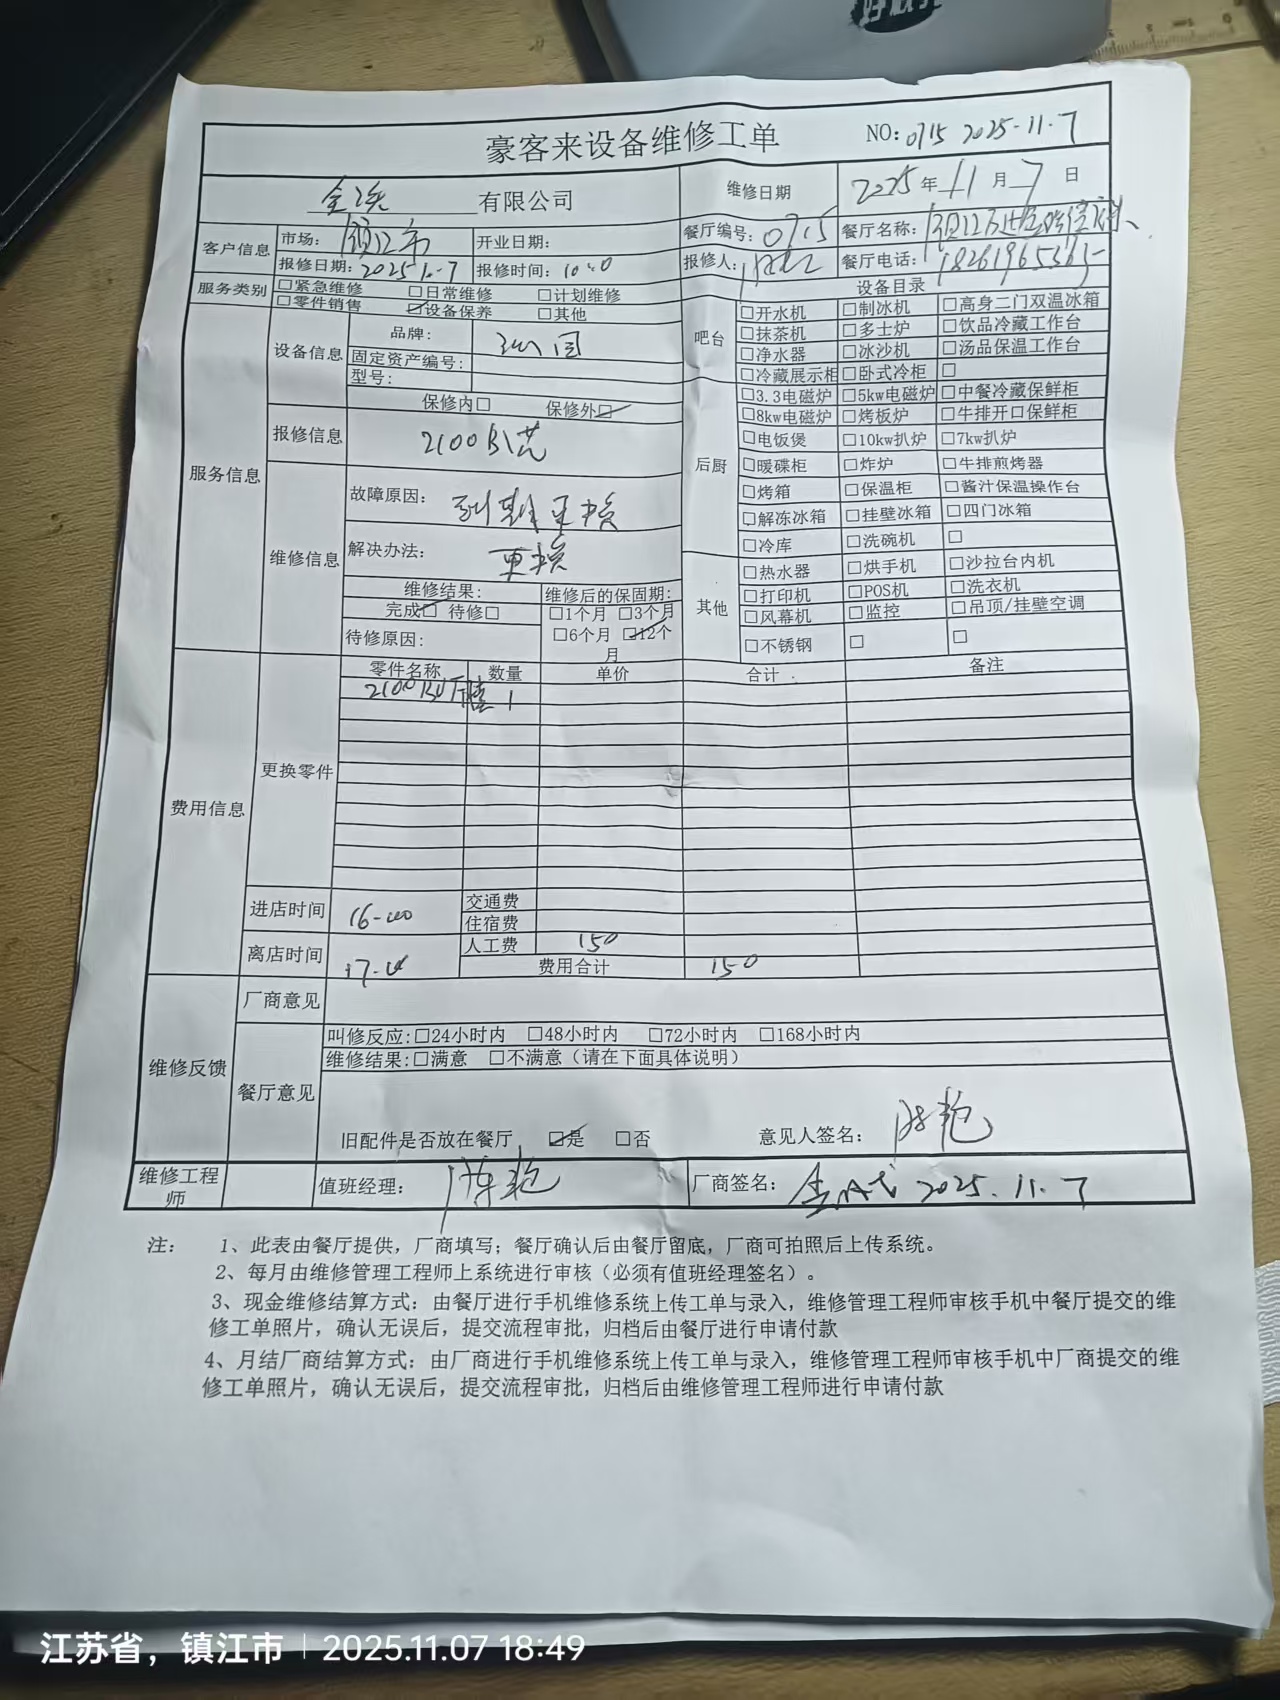 豪客来设备维修工单 NO: 0715 2025.11.7
有限公司 维修日期 2025年11月7日
客户信息 市场: 镇江市 开业日期: 餐厅编号: 0715 餐厅名称: 镇江万达
报修日期: 2025.11.7 报修时间: 报修人: 餐厅电话: 18261965365
服务类别 □紧急维修 □日常维修 □计划维修 设备目录
□零件销售 ☑设备保养 □其他
服务信息 设备信息 品牌:
固定资产编号:
型号:
保修内□ 保修外☑
报修信息 2100B
维修信息 故障原因: 到期更换
解决办法: 更换
维修结果: 维修后的保固期:
完成☑ 待修□ □1个月 □3个月
待修原因: □6个月 ☑12个月
吧台 □开水机 □制冰机 □高身二门双温冰箱
□抹茶机 □多士炉 □饮品冷藏工作台
□净水器 □冰沙机 □汤品保温工作台
□冷藏展示柜 □卧式冷柜 □
后厨 □3.3电磁炉 □5kw电磁炉 □中餐冷藏保鲜柜
□8kw电磁炉 □烤板炉 □牛排开口保鲜柜
□电饭煲 □10kw扒炉 □7kw扒炉
□暖碟柜 □炸炉 □牛排煎烤器
□烤箱 □保温柜 □酱汁保温操作台
□解冻冰箱 □挂壁冰箱 □四门冰箱
□冷库 □洗碗机 □
其他 □热水器 □烘手机 □沙拉台内机
□打印机 □POS机 □洗衣机
□风幕机 □监控 □吊顶/挂壁空调
□不锈钢 □ □
费用信息 更换零件 零件名称 数量 单价 合计 备注
2100B 1
进店时间 16-00 交通费
住宿费
离店时间 人工费 150
费用合计 150
维修反馈 厂商意见
餐厅意见 叫修反应:□24小时内 □48小时内 □72小时内 □168小时内
维修结果:□满意 □不满意（请在下面具体说明）
旧配件是否放在餐厅 ☑是 □否 意见人签名: 陈艳
维修工程师 值班经理: 陈艳 厂商签名: 2025.11.7
注: 1、此表由餐厅提供，厂商填写；餐厅确认后由餐厅留底，厂商可拍照后上传系统。
2、每月由维修管理工程师上系统进行审核（必须有值班经理签名）。
3、现金维修结算方式：由餐厅进行手机维修系统上传工单与录入，维修管理工程师审核手机中餐厅提交的维
修工单照片，确认无误后，提交流程审批，归档后由餐厅进行申请付款
4、月结厂商结算方式：由厂商进行手机维修系统上传工单与录入，维修管理工程师审核手机中厂商提交的维
修工单照片，确认无误后，提交流程审批，归档后由维修管理工程师进行申请付款
江苏省，镇江市 | 2025.11.07 18:49